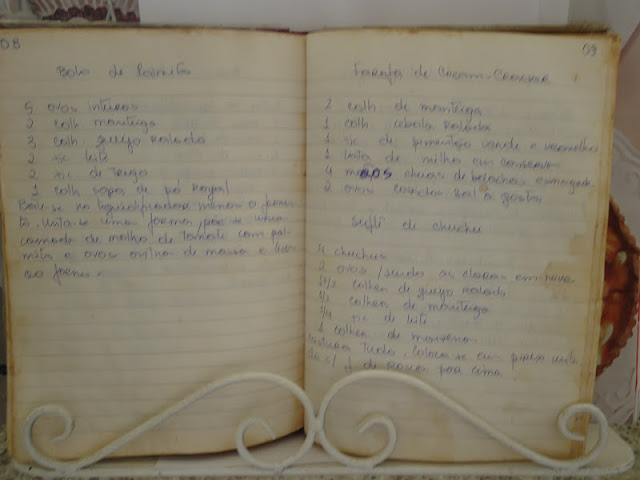 08
Bolo de Palmito
5 ovos inteiros
2 colh manteiga
3 colh queijo ralado
2 xic leite
2 xic de trigo
1 colh sopa de pó Royal
Bate-se no liquidificador menos o fermen-
to. Unta-se uma forma, põe-se uma
camada de molho de tomate com pal-
mito e ovos
ao forno.
09
Farofa de Cream-Cracker
2 colh de manteiga
1 colh cebola ralada
1 xic de pimentão verde e vermelho
1 lata de milho em conserva
4 mãos cheias de bolachas esmagada
2 ovos cozidos sal a gosto
Suflê de chuchu
4 chuchus
2 ovos /sendo as claras em neve
1/2 colher de queijo ralado
1/2 colher de manteiga
1/4 xic de leite
1 colher de maizena
Mistura tudo. Coloca-se em pirex unta-
do c/ f de rosca por cima.